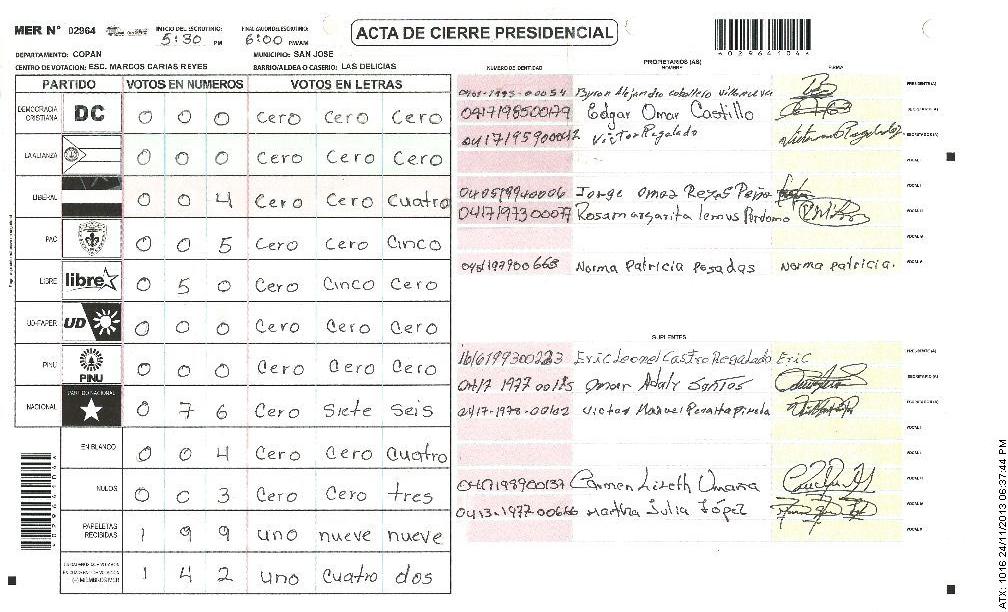 MER Nº 02964 INICIO DEL ESCRUTINIO: 5:30 PM FINALIZACION DEL ESCRUTINIO: 6:00 PM/AM
ACTA DE CIERRE PRESIDENCIAL
DEPARTAMENTO: COPAN MUNICIPIO: SAN JOSE
CENTRO DE VOTACION: ESC. MARCOS CARIAS REYES BARRIO/ALDEA O CASERIO: LAS DELICIAS
PARTIDO VOTOS EN NUMEROS VOTOS EN LETRAS
DEMOCRACIA CRISTIANA DC 0 0 0 Cero Cero Cero
LA ALIANZA 0 0 0 Cero Cero Cero
LIBERAL 0 0 4 Cero Cero Cuatro
PAC 0 0 5 Cero Cero Cinco
LIBRE libre 0 5 0 Cero Cinco Cero
UD-FAPER UD 0 0 0 Cero Cero Cero
PINU PINU 0 0 0 Cero Cero Cero
NACIONAL PARTIDO NACIONAL 0 7 6 Cero Siete Seis
EN BLANCO 0 0 4 Cero Cero Cuatro
NULOS 0 0 3 Cero Cero tres
PAPELETAS RECIBIDAS 1 9 9 uno nueve nueve
(+) MIEMBROS MER 1 4 2 uno Cuatro dos
PROPIETARIOS (AS)
NUMERO DE IDENTIDAD NOMBRE FIRMA
Byron Alejandro caballero villanueva PRESIDENTE(A)
0417198500179 Edgar Omar Castillo SECRETARIO(A)
Victor Regalado
VOCAL I
040519940006 Jorge Omar Reyes Peña VOCAL II
0417197300077 Rosamargarita lemus Perdomo VOCAL III
VOCAL IV
Norma Patricia Posadas Norma patricia. VOCAL V
SUPLENTES
Eric Leonel Castro Regalado Eric PRESIDENTE(A)
Omar Adaly Santos SECRETARIO(A)
Victor Manuel Peraita Pineda
VOCAL I
VOCAL II
0417198900137 Carmen Lizeth Umaña
Martha Julia López
VOCAL V
*02964104*
ATX: 1016 24/11/2013 06:37:44 PM